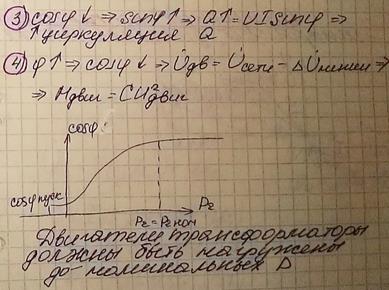 3) cosφ↓ ⇒ sinφ↑ ⇒ Q↑ = UI sinφ ⇒
↑ циркуляция Q
4) φ↑ ⇒ cosφ↓ ⇒ U̇дв = U̇сети - ΔU̇линии ⇒
⇒ Mдвиг = CU²двиг
cosφ
cosφ пуск
P₂
P₂ = P₂ ном
Двигатели, трансформаторы
должны быть нагружены
до номинальных P